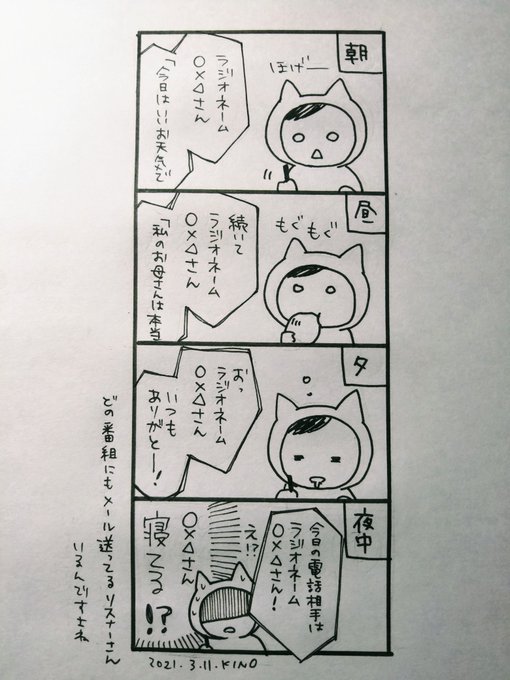 朝
ほげー
ラジオネーム
○×△さん
「今日はいいお天気で
昼
もぐもぐ
続いて
ラジオネーム
○×△さん
「私のお母さんは本当
夕
おっ
ラジオネーム
○×△さん
いつも
ありがとー!
夜中
今日の電話相手は
ラジオネーム
○×△さん!
え!?
○×△さん
寝てる!?
どの番組にもメール送ってるリスナーさん
いるんですよね
2021.3.11.KINO